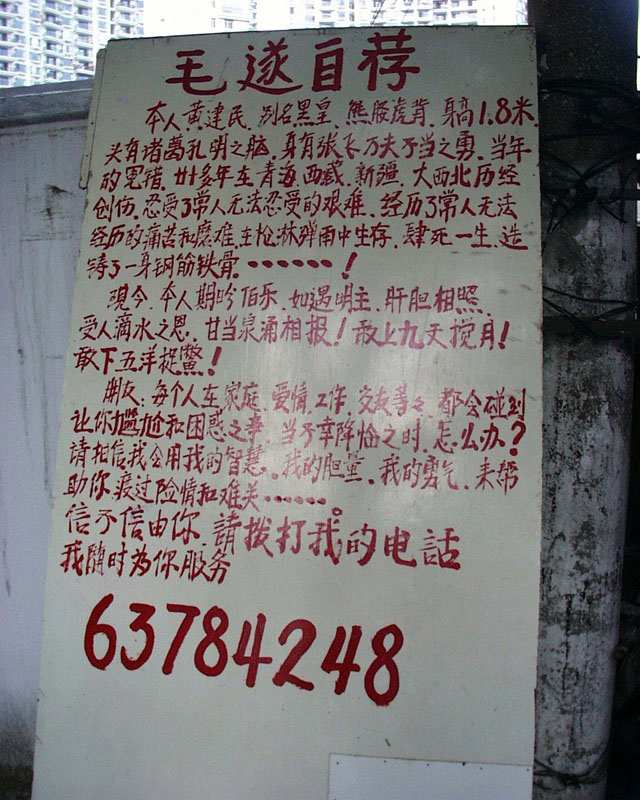 毛遂自荐
本人黄建民,别名黑皇,熊腰虎背,身高1.8米,
头有诸葛孔明之脑,身有张飞万夫不当之勇,当年
的冤错,廿多年在青海,西藏,新疆,大西北历经
创伤,忍受了常人无法忍受的艰难,经历了常人无法
经历的痛苦和磨难,在枪淋弹雨中生存,肆死一生,造
铸了一身钢筋铁骨……!
现今,本人期吟伯乐,如遇明主,肝胆相照,
受人滴水之恩,甘当泉涌相报!敢上九天搅月!
敢下五洋捉鳖!
朋友:每个人在家庭,爱情,工作,交友等々,都会碰到
让你尴尬和困惑之事,当不幸降临之时,怎么办?
請相信我会用我的智慧,我的胆量,我的勇气,来帮
助你渡过险情和难关……。
信不信由你,請拨打我的电話
我随时为你服务
63784248